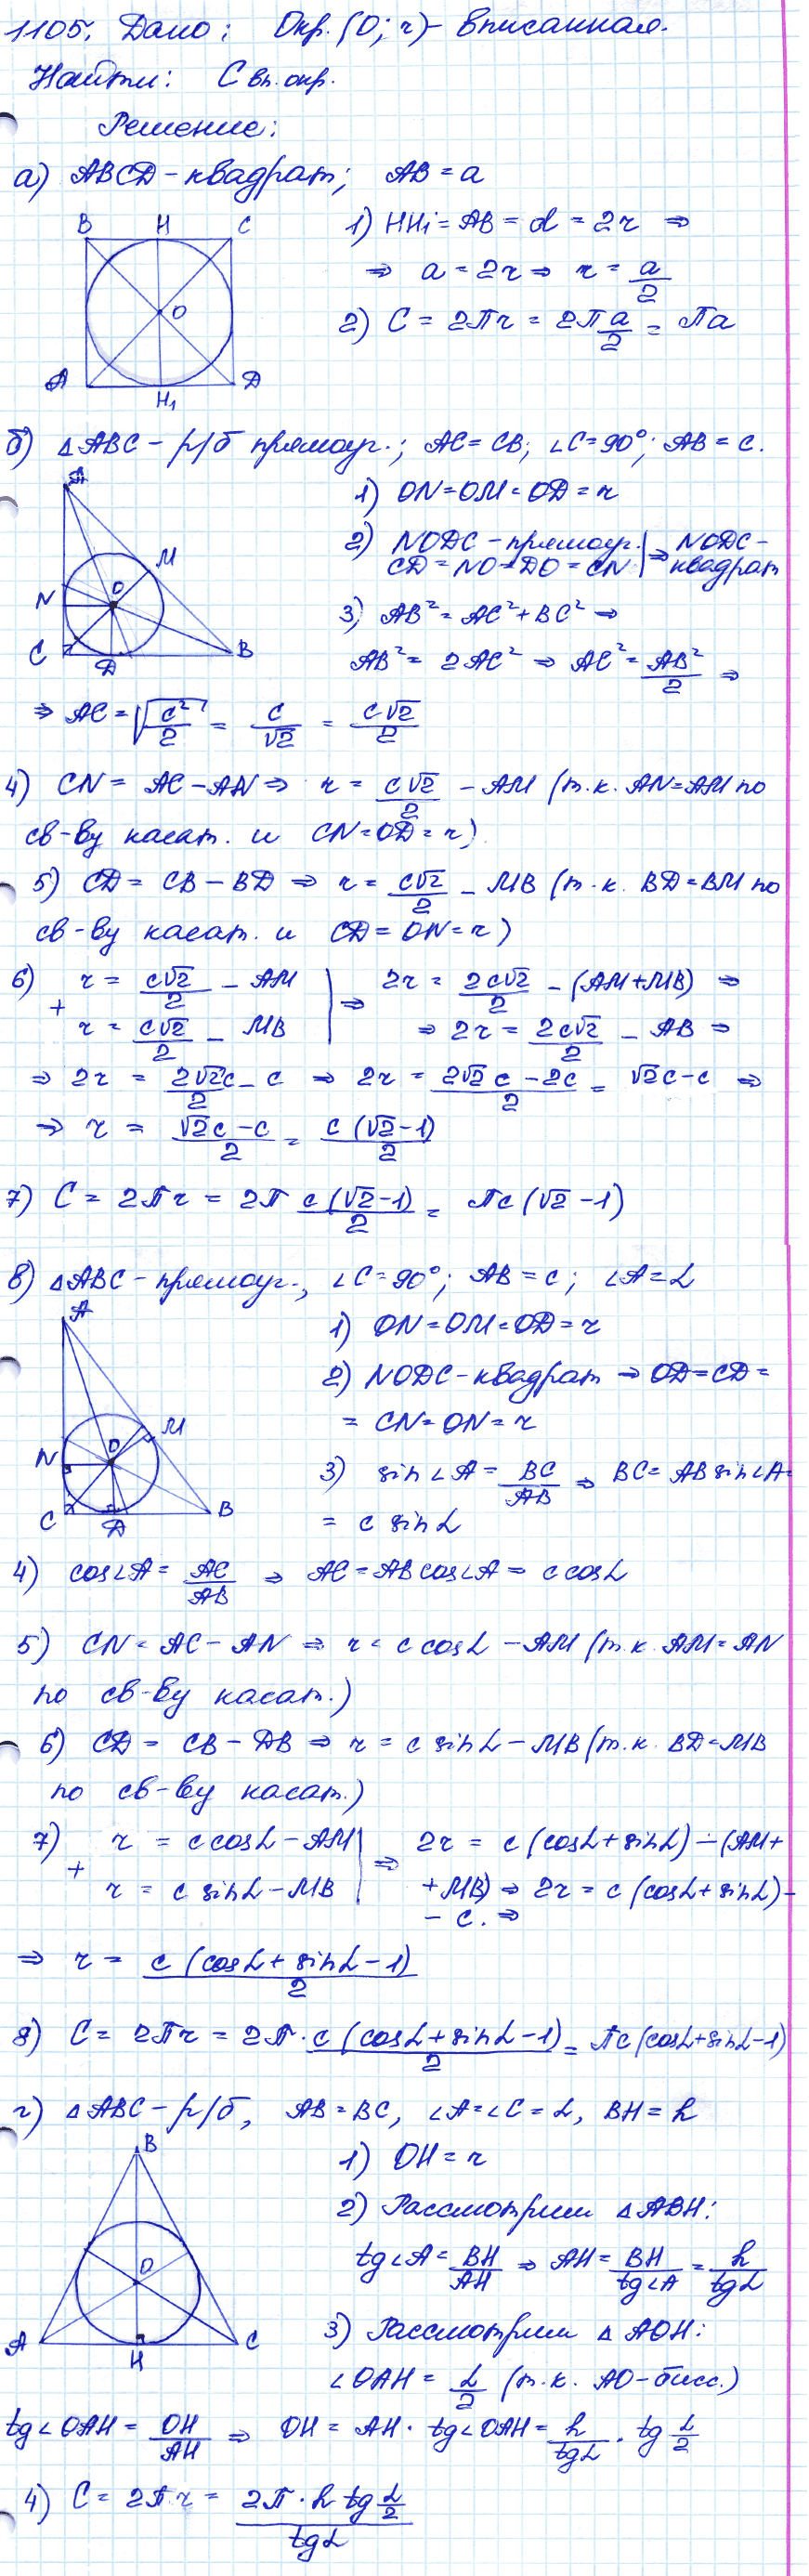 1105. Дано: Окр.(O; r) - вписанная.
Найти: C вп. окр.
Решение:
а) ABCD - квадрат; AB = a
B H C
O
A H₁ D
1) HH₁ = AB = d = 2r ⇒
⇒ a = 2r ⇒ r = a/2
2) C = 2πr = 2π a/2 = πa
б) △ABC - р/б прямоуг.; AC = CB; ∠C = 90°; AB = c.
A
M
O
N
C D B
1) ON = OM = OD = r
2) NODC - прямоуг. | ⇒ NODC -
CD = NO = DO = CN | квадрат
3) AB² = AC² + BC² ⇒
AB² = 2AC² ⇒ AC² = AB²/2 ⇒
⇒ AC = √(c²/2) = c/√2 = c√2/2
4) CN = AC - AN ⇒ r = c√2/2 - AM (т.к. AN = AM по
св-ву касат. и CN = OD = r)
5) CD = CB - BD ⇒ r = c√2/2 - MB (т.к. BD = BM по
св-ву касат. и CD = ON = r)
6) r = c√2/2 - AM | ⇒ 2r = 2c√2/2 - (AM + MB) ⇒
+ r = c√2/2 - MB | ⇒ 2r = 2c√2/2 - AB ⇒
⇒ 2r = 2√2c/2 - c ⇒ 2r = (2√2c - 2c)/2 = √2c - c ⇒
⇒ r = (√2c - c)/2 = c(√2 - 1)/2
7) C = 2πr = 2π c(√2 - 1)/2 = πc(√2 - 1)
в) △ABC - прямоуг., ∠C = 90°; AB = c; ∠A = α
A
M
O
N
C D B
1) ON = OM = OD = r
2) NODC - квадрат ⇒ OD = CD =
= CN = ON = r
3) sin∠A = BC/AB ⇒ BC = AB sin∠A =
= c sinα
4) cos∠A = AC/AB ⇒ AC = AB cos∠A = c cosα
5) CN = AC - AN ⇒ r = c cosα - AM (т.к. AM = AN
по св-ву касат.)
6) CD = CB - DB ⇒ r = c sinα - MB (т.к. BD = MB
по св-ву касат.)
7) r = c cosα - AM | ⇒ 2r = c(cosα + sinα) - (AM +
+ r = c sinα - MB | + MB) ⇒ 2r = c(cosα + sinα) -
- c. ⇒
⇒ r = c(cosα + sinα - 1)/2
8) C = 2πr = 2π · c(cosα + sinα - 1)/2 = πc(cosα + sinα - 1)
г) △ABC - р/б, AB = BC, ∠A = ∠C = α, BH = h
B
O
A H C
1) OH = r
2) Рассмотрим △ABH:
tg∠A = BH/AH ⇒ AH = BH/tg∠A = h/tgα
3) Рассмотрим △AOH:
∠OAH = α/2 (т.к. AO - бисс.)
tg∠OAH = OH/AH ⇒ OH = AH · tg∠OAH = h/tgα · tg α/2
4) C = 2πr = 2π · h tg α/2 / tgα